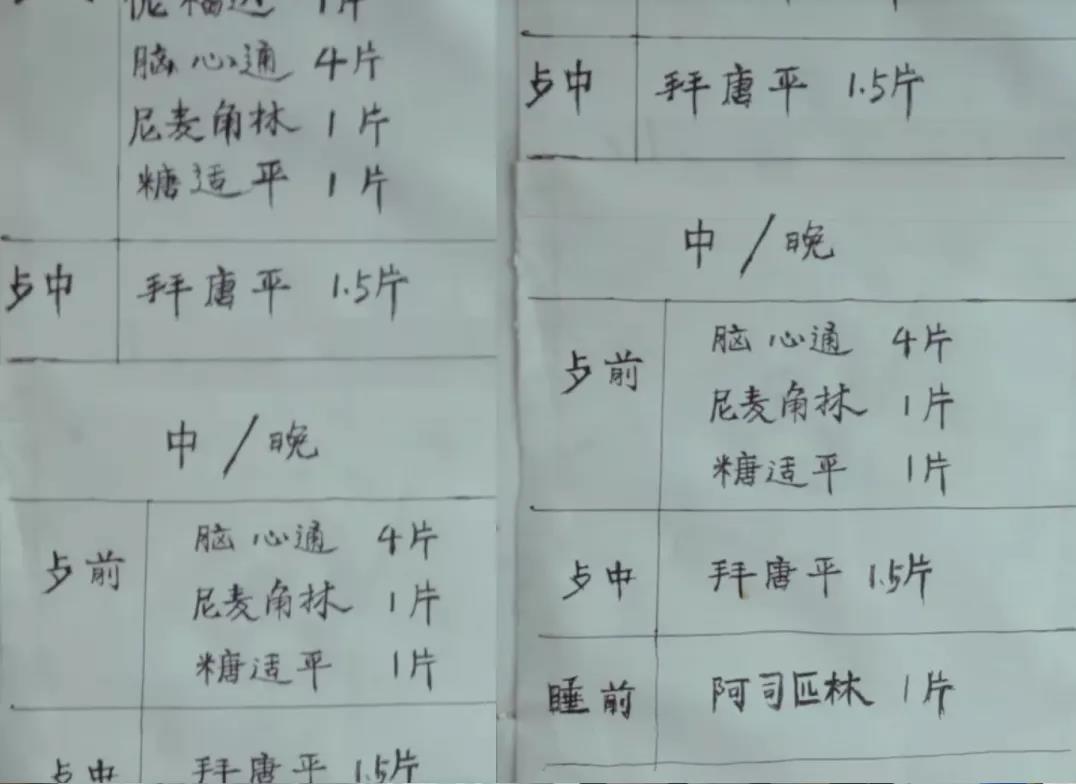 脑心通 4片
尼麦角林 1片
糖适平 1片
歺中 拜唐平 1.5片
中/晚
歺前
脑心通 4片
尼麦角林 1片
糖适平 1片
歺中 拜唐平 1.5片
歺中 拜唐平 1.5片
中/晚
歺前
脑心通 4片
尼麦角林 1片
糖适平 1片
歺中 拜唐平 1.5片
睡前 阿司匹林 1片